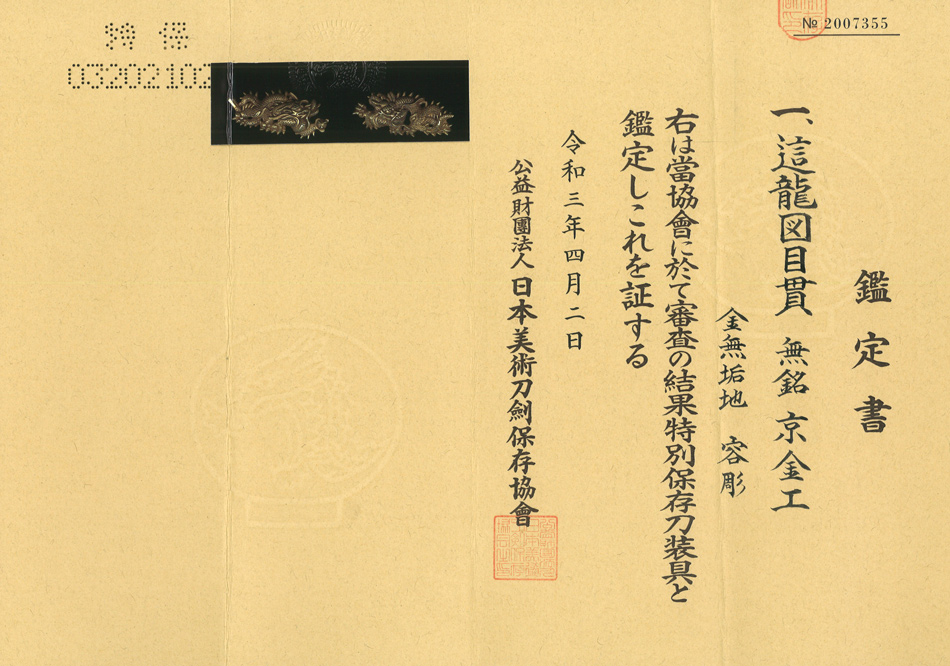 № 2007355
鑑定書
一、這龍図目貫 無銘 京金工
金無垢地 容彫
右は當協會に於て審査の結果特別保存刀装具と
鑑定しこれを証する
令和三年四月二日
公益財團法人 日本美術刀劍保存協會
特保
03202102